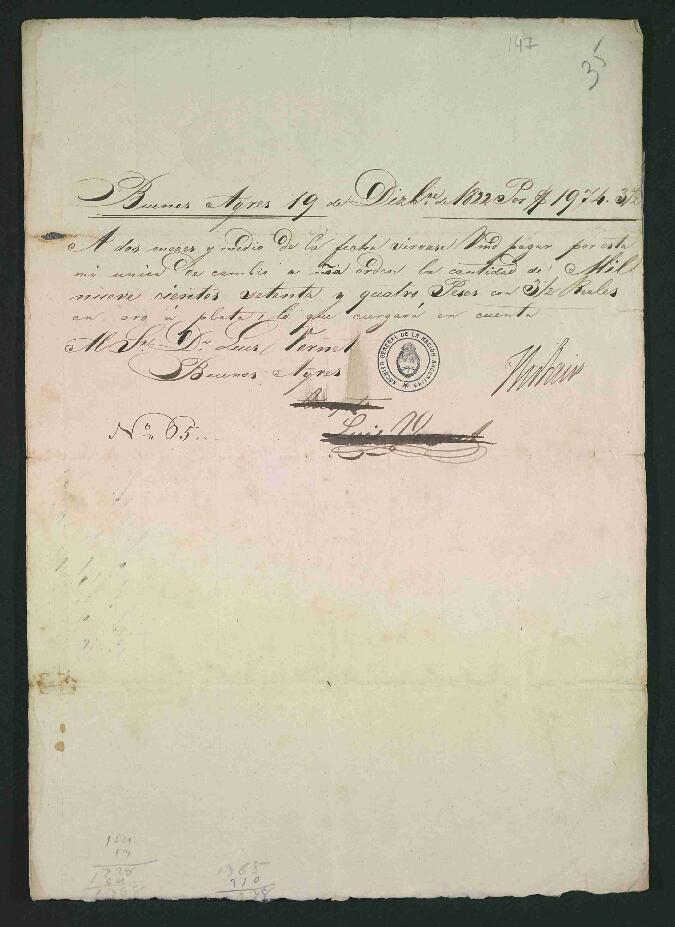 147
35
Buenos Ayres 19 de Dizbre. de 1822 Por $ 1974. 3 1/2
A dos meses y medio de la fecha sirvase Vmd pagar por esta
mi unica de cambio a mia orden la cantidad de Mil
nueve cientos setenta y quatro Pesos con 3 1/2 Reales
en oro ó plata, lo que cargará en cuenta
Al Sr. Dn Luis Vernet
Buenos Ayres
ARCHIVO GENERAL DE LA NACION ARGENTINA
No. 65.
Luis Vernet
1365
210